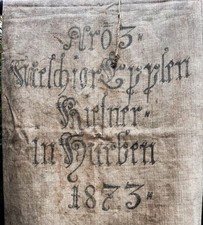 N:ro 3.
Melchior Epplen
Kiefner
In Hürben
1873.